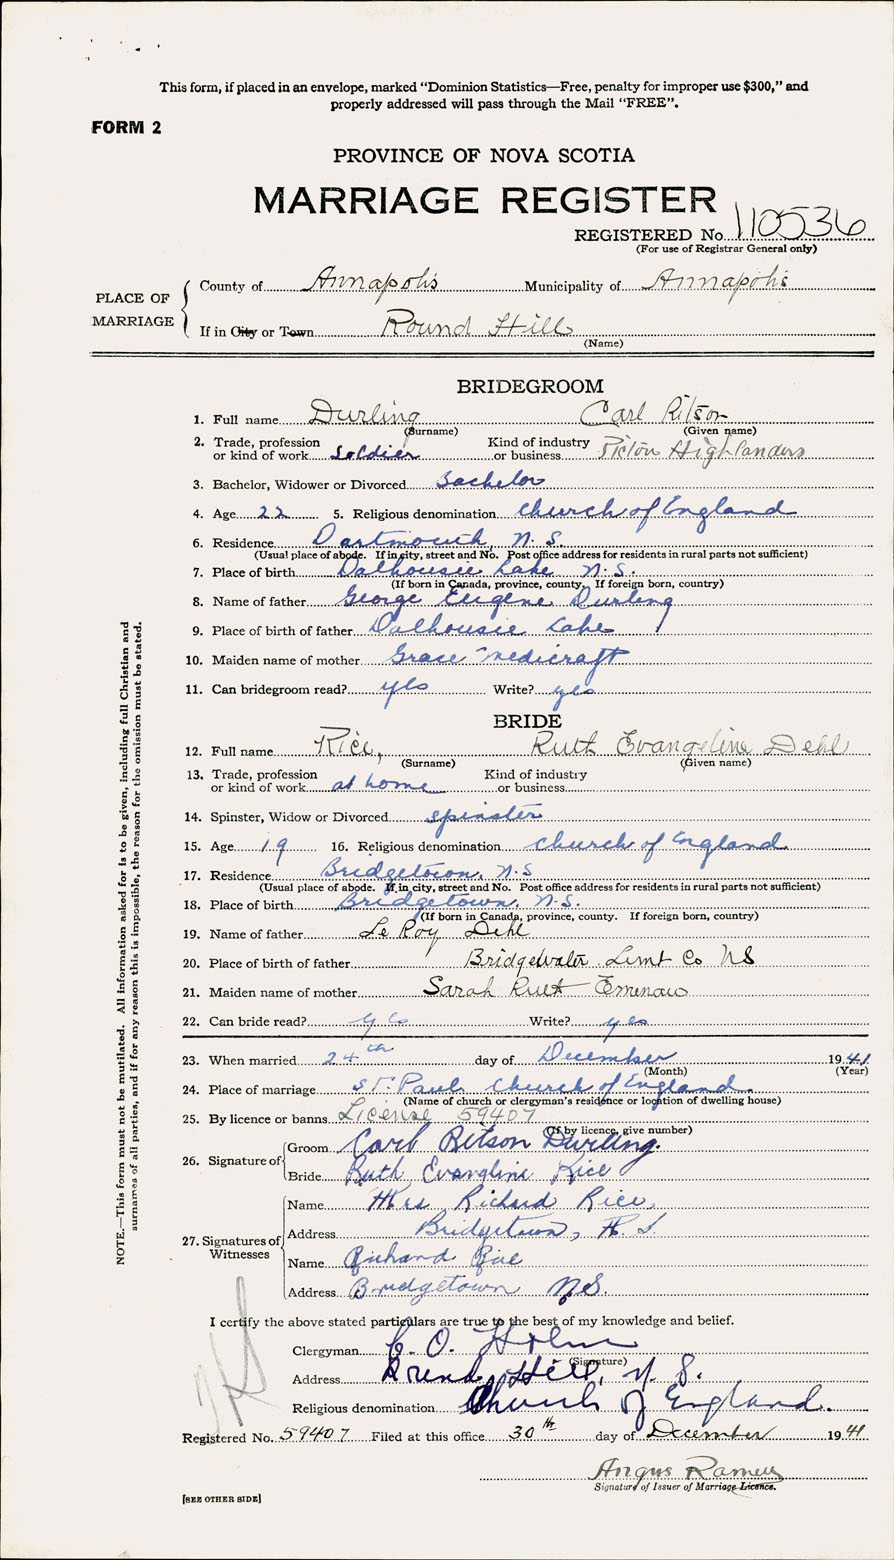 This form, if placed in an envelope, marked "Dominion Statistics—Free, penalty for improper use $300," and
properly addressed will pass through the Mail "FREE".
FORM 2
PROVINCE OF NOVA SCOTIA
MARRIAGE REGISTER
REGISTERED No. 110536
(For use of Registrar General only)
PLACE OF MARRIAGE
County of Annapolis Municipality of Annapolis
If in City or Town Round Hill
(Name)
BRIDEGROOM
1. Full name Durling Carl Ritson
(Surname) (Given name)
2. Trade, profession or kind of work Soldier Kind of industry or business Pictou Highlanders
3. Bachelor, Widower or Divorced Bachelor
4. Age 22 5. Religious denomination Church of England
6. Residence Dartmouth, N.S.
(Usual place of abode. If in city, street and No. Post office address for residents in rural parts not sufficient)
7. Place of birth Dalhousie Lake N.S.
(If born in Canada, province, county. If foreign born, country)
8. Name of father George Eugene Durling
9. Place of birth of father Dalhousie Lake
10. Maiden name of mother Grace Medicraft
11. Can bridegroom read? yes Write? yes
BRIDE
12. Full name Rice, Ruth Evangeline Dehl
(Surname) (Given name)
13. Trade, profession or kind of work at home Kind of industry or business
14. Spinster, Widow or Divorced spinster
15. Age 19 16. Religious denomination Church of England
17. Residence Bridgetown, N.S
(Usual place of abode. If in city, street and No. Post office address for residents in rural parts not sufficient)
18. Place of birth Bridgetown, N.S.
(If born in Canada, province, county. If foreign born, country)
19. Name of father Le Roy Dehl
20. Place of birth of father Bridgewater Lunt Co NS
21. Maiden name of mother Sarah Ruth Emenau
22. Can bride read? yes Write? yes
23. When married 24th day of December 1941
(Month) (Year)
24. Place of marriage St. Pauls Church of England.
(Name of church or clergyman's residence or location of dwelling house)
25. By licence or banns License 59407
(If by licence, give number)
26. Signature of
Groom Carl Ritson Durling.
Bride Ruth Evangline Rice
27. Signatures of Witnesses
Name Mrs Richard Rice,
Address Bridgetown, N.S.
Name Richard Rice
Address Bridgetown N.S.
I certify the above stated particulars are true to the best of my knowledge and belief.
Clergyman C. O.
(Signature)
Address Round Hill, N.S.
Religious denomination Church of England.
Registered No. 59407 Filed at this office 30th day of December 1941
Angus
Signature of Issuer of Marriage Licence.
[SEE OTHER SIDE]
NOTE.—This form must not be mutilated. All information asked for is to be given, including full Christian and
surnames of all parties, and if for any reason this is impossible, the reason for the omission must be stated.